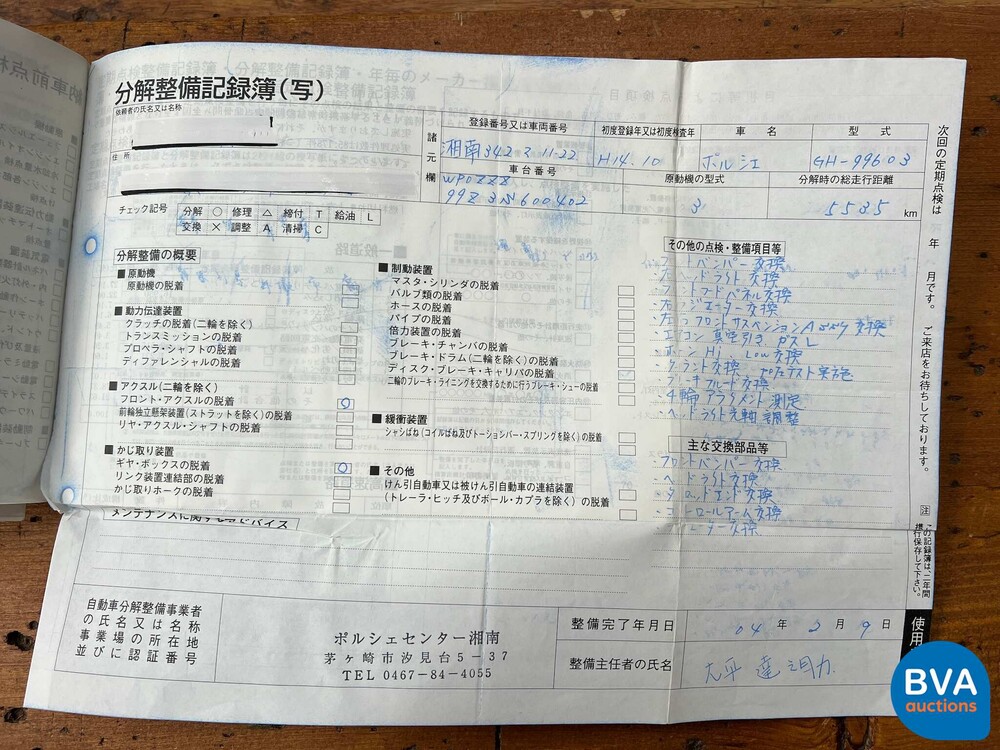 分解整備記録簿(写)
依頼者の氏名又は名称
住所
諸元欄
登録番号又は車両番号
初度登録年又は初度検査年
車名
型式
湘南342 ス 11-22
H14.10
ポルシェ
GH-99603
車台番号
原動機の型式
分解時の総走行距離
WP0ZZZ
99Z 3S600402
3
5535 km
チェック記号
分解 ○ 修理 △ 締付 T 給油 L
交換 × 調整 A 清掃 C
分解整備の概要
■原動機
原動機の脱着
■動力伝達装置
クラッチの脱着(二輪を除く)
トランスミッションの脱着
プロペラ・シャフトの脱着
ディファレンシャルの脱着
■アクスル(二輪を除く)
フロント・アクスルの脱着
前輪独立懸架装置(ストラットを除く)の脱着
リヤ・アクスル・シャフトの脱着
■かじ取り装置
ギヤ・ボックスの脱着
リンク装置連結部の脱着
かじ取りホークの脱着
■制動装置
マスタ・シリンダの脱着
バルブ類の脱着
ホースの脱着
パイプの脱着
倍力装置の脱着
ブレーキ・チャンバの脱着
ブレーキ・ドラム(二輪を除く)の脱着
ディスク・ブレーキ・キャリパの脱着
二輪のブレーキ・ライニングを交換するために行うブレーキ・シューの脱着
■緩衝装置
シャシばね(コイルばね及びトーションバー・スプリングを除く)の脱着
■その他
けん引自動車又は被けん引自動車の連結装置
(トレーラ・ヒッチ及びボール・カプラを除く)の脱着
その他の点検・整備項目等
・フロントバンパー交換
ヘッドライト交換
パネル交換
ラジエーター交換
フロントサスペンション 交換
エアコン真空引き ガスL
・ホーンHi, Low交換
交換
ブレーキフルード交換
・4輪アライメント測定
・ヘッドライト光軸調整
主な交換部品等
・フロントバンパー交換
・ヘッドライト交換
・タイロッドエンド交換
・コントロールアーム交換
交換
次回の定期点検は 年 月です。ご来店をお待ちしております。
注 この記録簿は、二年間携行保存して下さい。
メンテナンスに関するアドバイス
自動車分解整備事業者
の氏名又は名称
事業場の所在地
並びに認証番号
ポルシェセンター湘南
茅ヶ崎市汐見台5-37
TEL 0467-84-4055
整備完了年月日
04 年 3 月 9 日
整備主任者の氏名
大平
使用
BVA
auctions